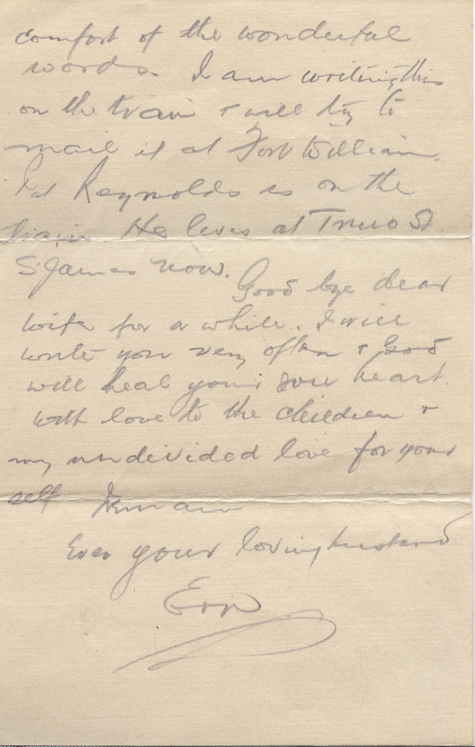 comfort of the wonderful
words. I am writing this
on the train & will try to
mail it at Fort William.
Pat Reynolds is on the
train He lives at Truro St
St James now.
Good bye dear
wife for a while. I will
write you very often & God
will heal your sore heart.
With love to the children &
my undivided love for your
self I remain
Ever your loving husband